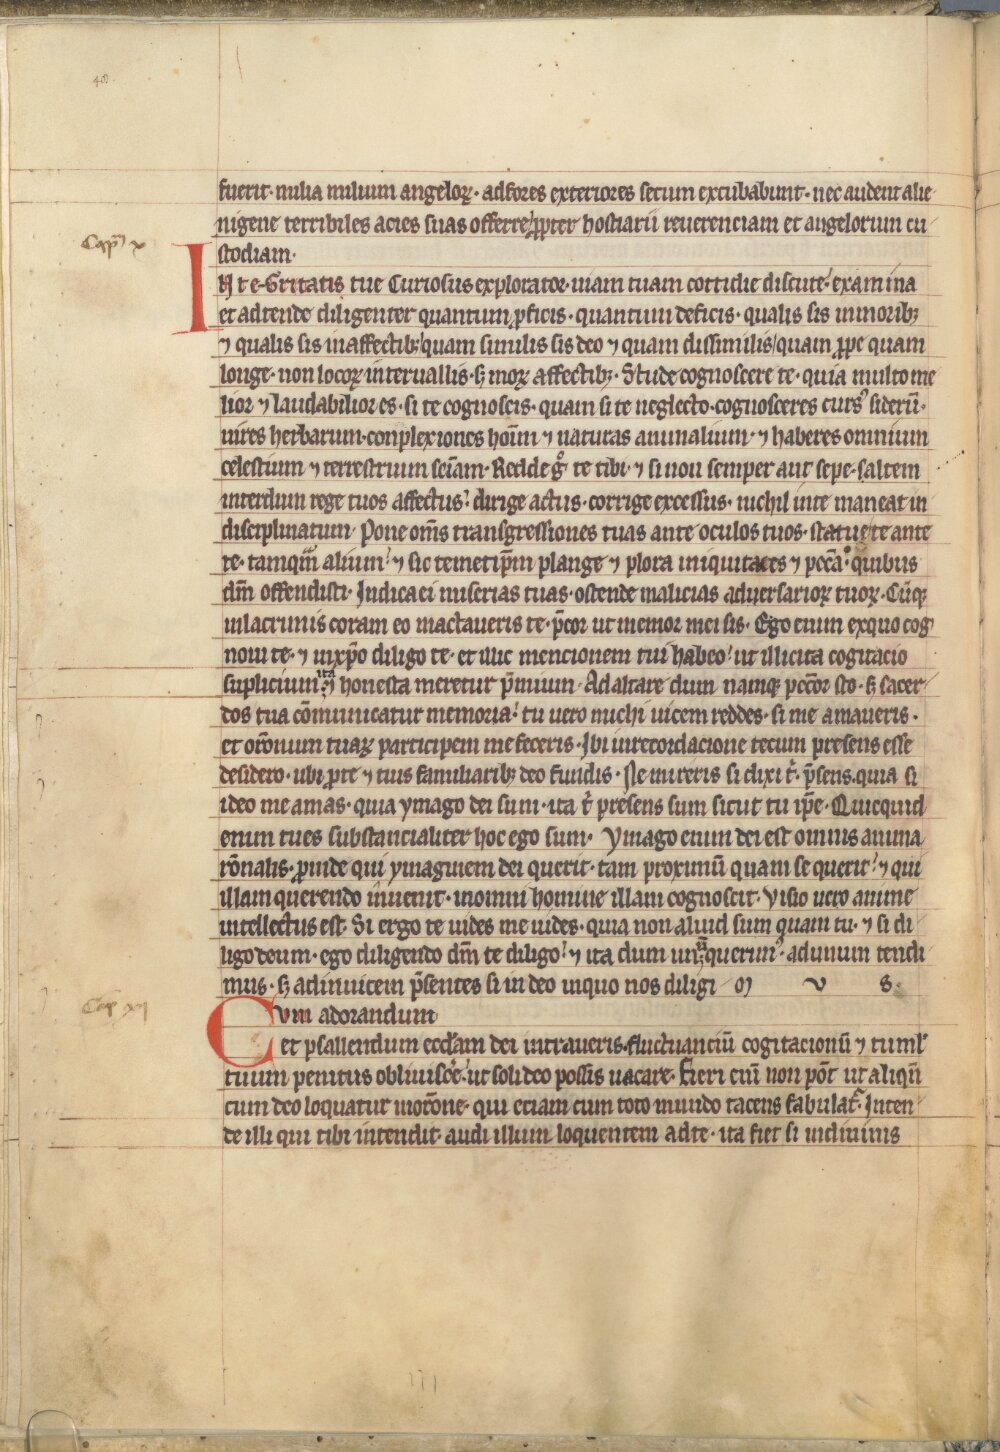 40
fuerit· milia milium angeloꝝ· ad fores exteriores secum excubabunt· nec audent alie
nigene terribiles acies suas offerre/ ꝓpter hostiarii reuerenciam et angelorum cu
Capᵐ x
stodiam·
INtegritatis tue Curiosus explorator· uiam tuam cottidie discute· examina
et adtende diligenter quantum ꝓficis· quantum deficis· qualis sis in moribꝫ
⁊ qualis sis in affectibꝫ/ quam similis sis deo ⁊ quam dissimilis/ quam ꝓpe quam
longe· non locoꝝ interuallis· sꝫ moꝝ affectibꝫ· Stude cognoscere te· quia multo me
lior ⁊ laudabilior es· si te cognoscis· quam si te neglecto· cognosceres cursꝰ siderū·
uires herbarum· conplexiones hoīm ⁊ naturas animalium· ⁊ haberes omnium
celestium ⁊ terrestrium sciām· Redde gͦ te tibi· ⁊ si non semper aut sepe· saltem
interdum rege tuos affectus· dirige actus· corrige excessus· nichil in te maneat in
disciplinatum· Pone om̄s transgressiones tuas ante oculos tuos· statue te ante
te· tamqm̄ alium· ⁊ sic temetip̄m plange ⁊ plora iniquitates ⁊ pccā· quibus
dm̄ offendisti· Indica ei miserias tuas· ostende malicias aduersarioꝝ tuoꝝ· Cūqꝫ
in lacrimis coram eo mactaueris te· p̄cor ut memor mei sis· Ego enim ex quo cog
noui te· ⁊ in xp̄o diligo te· et illic mencionem tui habeo· ut illicita cogitacio
suplicium ita ⁊ honesta meretur p̄mium· Ad altare dum namqꝫ pcc̄or sto· sꝫ sacer
dos tua cōmunicatur memoria· tu uero michi uicem reddes· si me amaueris·
et orōnum tuaꝝ participem me feceris· Ibi in recordacione tecum presens esse
desidero· ubi ꝓ te ⁊ tuis familiaribꝫ deo fundis· Ne mireris si dixi t̄· p̄sens· quia si
ideo me amas· quia ymago dei sum· ita t̄ presens sum sicut tu ip̄e· Quicquid
enim tu es substancialiter hoc ego sum· Ymago enim dei est omnis anima
rōnalis· ꝓinde qui ymaginem dei querit· tam proximū quam se querit· ⁊ qui
illam querendo inuenit· in omni homine illam cognoscit· Visio uero anime
intellectus est· Si ergo te uides me uides· quia non aliud sum quam tu· ⁊ si di
ligo deum· ego diligendo dm̄ te diligo· ⁊ ita dum unū querimꝰ· ad unum tendi
mus· sꝫ ad inuicem p̄sentes si in deo in quo nos diligi m v s·
Cap xi
Cvm adorandum
et psallendum eccl̄am dei intraueris· fluctuanciū cogitacionū ⁊ tumul
tuum penitus obliuiscē· ut soli deo possis uacare· Fieri enī non pōt ut aliqn̄
cum deo loquatur in orōne· qui eciam cum toto mundo tacens fabulat᷑· Inten
de illi qui tibi intendit· audi illum loquentem ad te· ita fiet si in diuinis